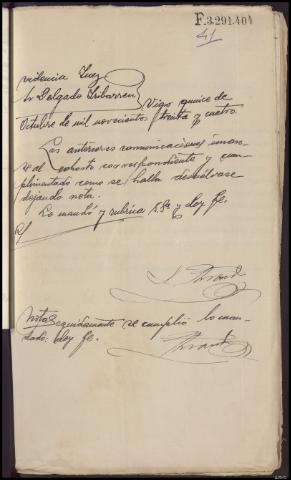 F.3.291.401
41
videncia Juez
Sr Delgado Iribarren
Vigo quince de
Octubre de mil novecientos treinta y cuatro
Las anteriores comunicaciones únan-
se al exhorto correspondiente y cum-
plimentado como se halla devuélvase
dejando nota.
Lo mandó y rubrica S.Sª y doy fe.
Nota. Seguidamente se cumplió lo man-
dado. Doy fe.